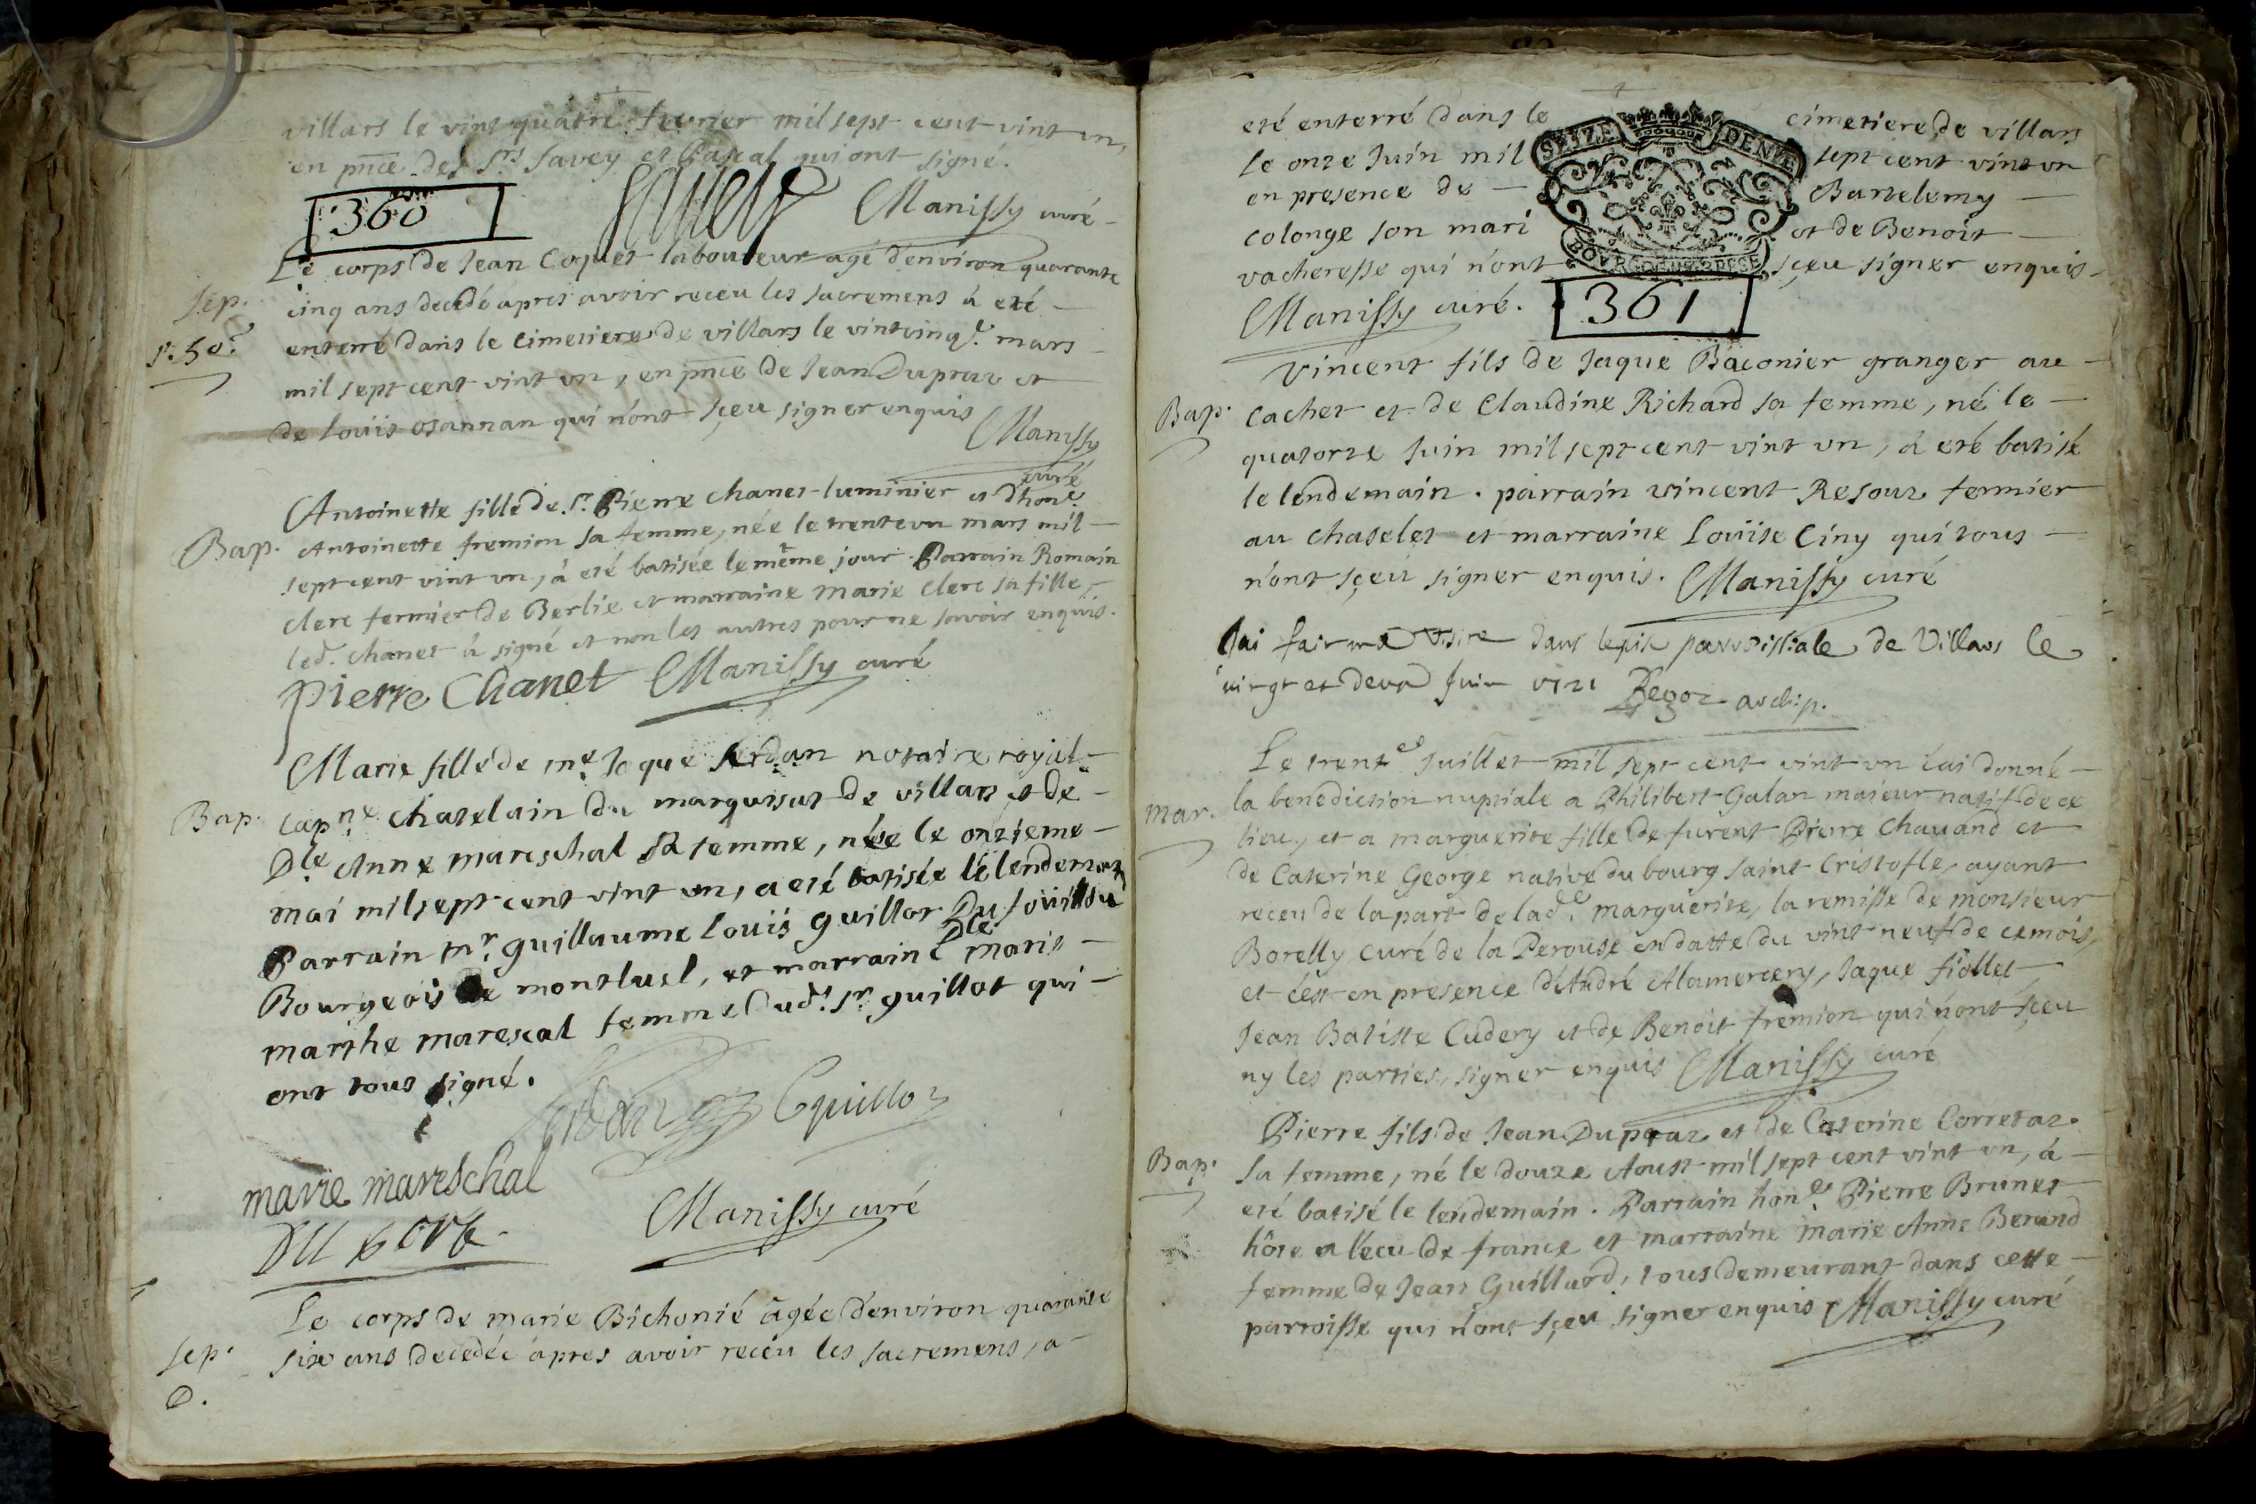 villars le vint quatre fevrier mil sept cent vint un,
en pnce des Srs Savey et Pascal qui ont signé.
Savey Manissy curé
360
Le corps de Jean Coquet laboureur agé d'environ quarante
Sep. cinq ans decedé apres avoir receu les sacremens à eté
enterré dans le cimetiere de villars le vintcinqe mars
mil sept cent vint un, en pnce de Jean Dupraz et
de loüis osannan qui n'ont sçeu signer enquis
Manissy
curé
Antoinette fille de Sr. Pierre Chanet luminier et d'hone.
Bap. Antoinette fremion sa femme, née le trente un mars mil
sept cent vint un, à eté batisée le même jour. Parrain Romain
clerc fermier de Berlie et marraine marie clerc sa fille,
led. chanet à signé et non les autres pour ne savoir enquis.
Pierre Chanet Manissy curé
Marie fille de me. Jaque Jordan notaire royal
Bap. capne. chatelain du marquisat de villars et de
Dle Anne mareschal sa femme, née le onzieme
mai mil sept cent vint un, a eté batisée le lendemain
Parrain mr. guillaume louis guillot Du
Bourgeois de montluel, et marraine Dle marie
marthe marescal femme dud. sr. guillot qui
ont tous signé.
Guillot
marie mareschal
Manissy curé
Le corps de marie Bichonié âgée d'environ quarante
Sep. six ans decedée apres avoir receu les sacremens, a
D.
eté enterré dans le cimetiere de villars
le onze Juin mil sept cent vint un
en presence de Bartelemy
colonge son mari et de Benoit
vacheresse qui n'ont sçeu signer enquis
SEIZE DENIE
BOURGOGNE BRESE
Manissy curé.
361
Vincent fils de Jaque Baconier granger au
Bap. Cachet et de Claudine Richard sa femme, né le
quatorze Juin mil sept cent vint un, à eté batisé
le lendemain. parrain vincent Resour fermier
au chatelet et marraine Loüise Ciny qui tous
n'ont sçeu signer enquis. Manissy curé
Jai fait ma visite dans leglise parroissiale de Villars le
vingt et deux Juin 1721 archip.
Le trente Juillet mil sept cent vint un j'ai donné
mar. la benediction nuptiale a Philibert Galan majeur natif de ce
lieu, et a marguerite fille de furent Pierre Chavand et
de Caterine George native du bourg saint Cristofle, ayant
receu de la part de lade. marguerite, la remisse de monsieur
Borelly curé de la Perouse en datte du vint neuf de ce mois,
et c'est en presence d'André Alamercery, Jaque fiollet
Jean Batiste Cudery et de Benoit fremion qui n'ont sçeu
ny les parties, signer enquis Manissy curé
Pierre fils de Jean Dupraz et de Caterine Corretaz
Bap. sa femme, né le douze Aoust mil sept cent vint un, à
eté batisé le lendemain. Parrain hone. Pierre Brunet
hôte a l'ecu de france et marraine marie Anne Berand
femme de Jean Guillard, tous demeurant dans cette
parroisse qui n'ont sçeu signer enquis Manissy curé